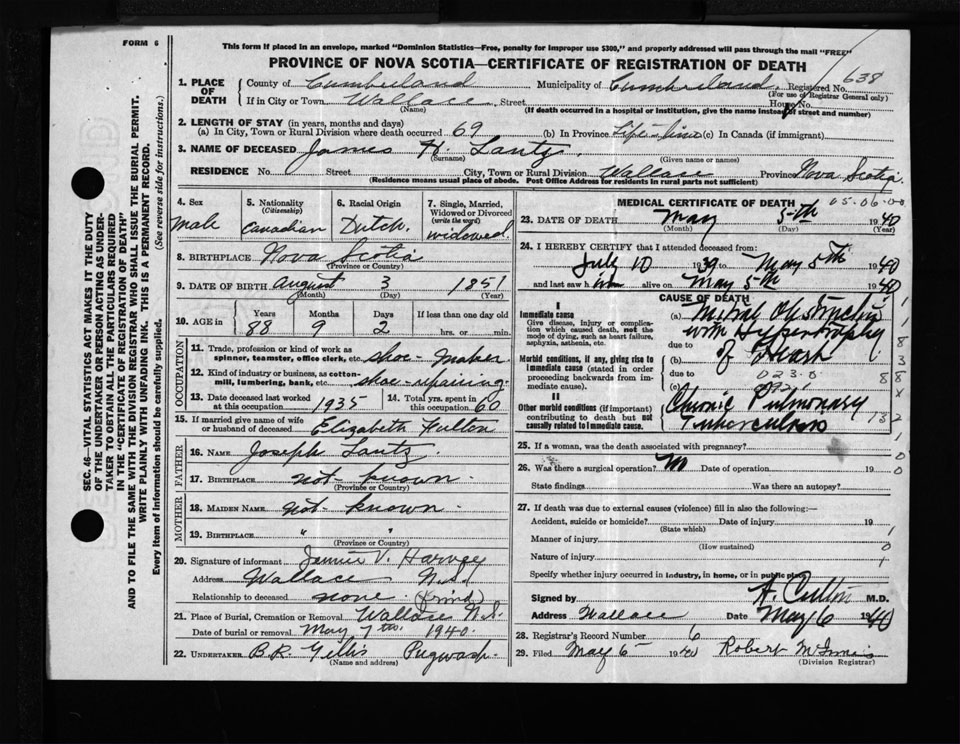 FORM 6
This form if placed in an envelope, marked "Dominion Statistics—Free, penalty for improper use $300," and properly addressed will pass through the mail "FREE"
PROVINCE OF NOVA SCOTIA—CERTIFICATE OF REGISTRATION OF DEATH
SEC. 46—VITAL STATISTICS ACT MAKES IT THE DUTY
OF THE UNDERTAKER OR PERSON ACTING AS UNDER-
TAKER TO OBTAIN ALL THE PARTICULARS REQUIRED
IN THE "CERTIFICATE OF REGISTRATION OF DEATH"
AND TO FILE THE SAME WITH THE DIVISION REGISTRAR WHO SHALL ISSUE THE BURIAL PERMIT.
WRITE PLAINLY WITH UNFADING INK. THIS IS A PERMANENT RECORD.
Every item of Information should be carefully supplied. (See reverse side for instructions.)
1. PLACE OF DEATH County of Cumberland Municipality of Cumberland Registered No. 638
(For use of Registrar General only)
If in City or Town Wallace Street House No.
(Name) (If death occurred in a hospital or institution, give the name instead of street and number)
2. LENGTH OF STAY (in years, months and days)
(a) In City, Town or Rural Division where death occurred 69 (b) In Province Life-time (c) In Canada (if immigrant)
3. NAME OF DECEASED James H. Lantz
(Surname) (Given name or names)
RESIDENCE No. Street City, Town or Rural Division Wallace Province Nova Scotia
(Residence means usual place of abode. Post Office Address for residents in rural parts not sufficient)
4. Sex male
5. Nationality (Citizenship) Canadian
6. Racial Origin Dutch
7. Single, Married, Widowed or Divorced (write the word) widowed
8. BIRTHPLACE Nova Scotia
(Province or Country)
9. DATE OF BIRTH August 3 1851
(Month) (Day) (Year)
10. AGE in Years 88 Months 9 Days 2 If less than one day old hrs. or min.
OCCUPATION
11. Trade, profession or kind of work as spinner, teamster, office clerk, etc. shoe-maker
12. Kind of industry or business, as cotton-mill, lumbering, bank, etc. shoe-repairing
13. Date deceased last worked at this occupation 1935
14. Total yrs. spent in this occupation 60
15. If married give name of wife or husband of deceased Elizabeth Fulton
FATHER
16. NAME Joseph Lantz
17. BIRTHPLACE not known
(Province or Country)
MOTHER
18. MAIDEN NAME not known
19. BIRTHPLACE " "
(Province or Country)
20. Signature of informant V. Harvey
Address Wallace N.S.
Relationship to deceased none (friend)
21. Place of Burial, Cremation or Removal Wallace N.S.
Date of burial or removal May 7th 1940
22. UNDERTAKER B.R. Gillis Pugwash
(Name and address)
MEDICAL CERTIFICATE OF DEATH
05-06-00
23. DATE OF DEATH May 5th 1940
(Month) (Day) (Year)
24. I HEREBY CERTIFY that I attended deceased from:
July 10 1939 to May 5th 1940
and last saw him alive on May 5th 1940
CAUSE OF DEATH
I
Immediate cause
Give disease, injury or complication which caused death, not the mode of dying, such as heart failure, asphyxia, asthenia, etc.
(a) Mitral Obstruction
with Hypertrophy
due to
of Heart
Morbid conditions, if any, giving rise to Immediate cause (stated in order proceeding backwards from immediate cause).
(b)
due to 023.0
(c) 092
II
Other morbid conditions (if important) contributing to death but not causally related to Immediate cause.
Chronic Pulmonary
Tuberculosis
25. If a woman, was the death associated with pregnancy?
26. Was there a surgical operation? Date of operation 19
State findings Was there an autopsy?
27. If death was due to external causes (violence) fill in also the following:—
Accident, suicide or homicide? Date of injury 19
(State which)
Manner of injury
(How sustained)
Nature of injury
Specify whether injury occurred in industry, in home, or in public place
Signed by M.D.
Address Wallace Date May 6 1940
28. Registrar's Record Number 6
29. Filed May 6 1940 Robert McInnis
(Division Registrar)